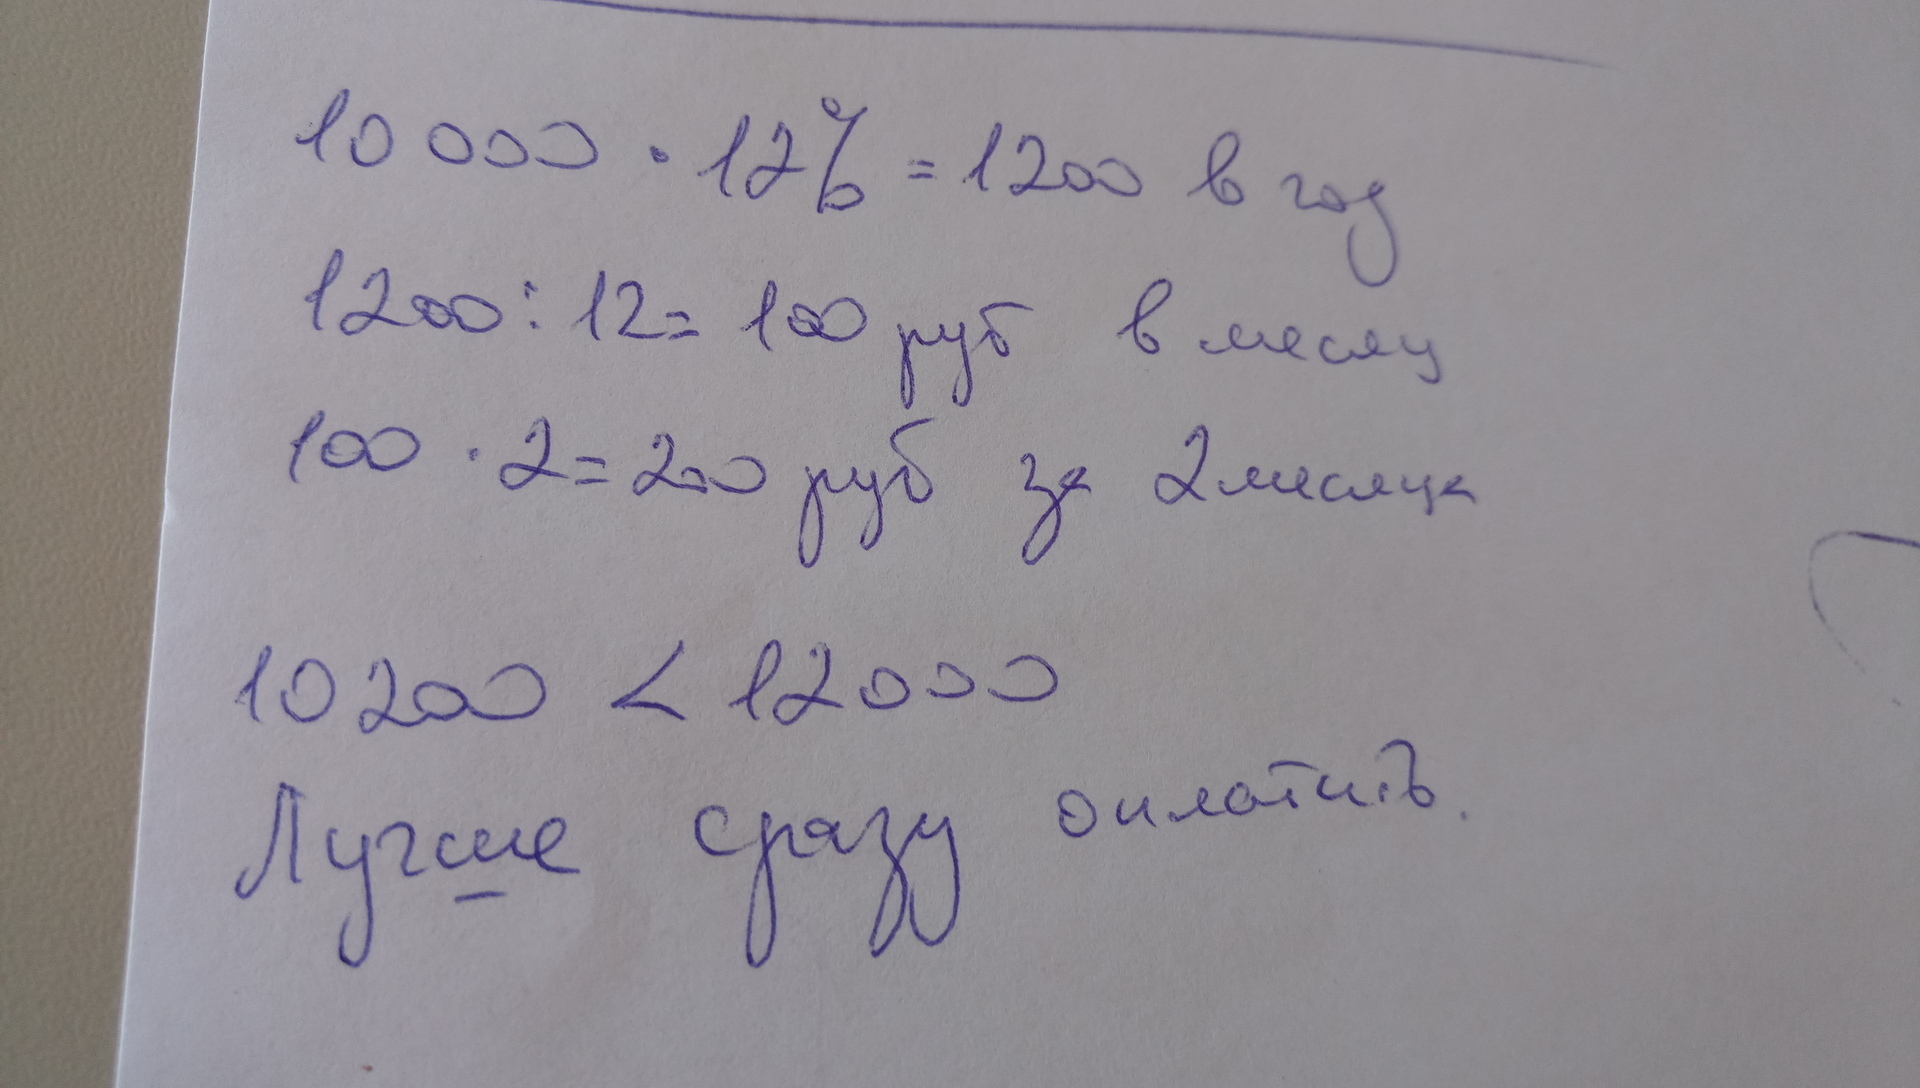 10 000 · 12% = 1200 в год
1200 : 12 = 100 руб в месяц
100 · 2 = 200 руб за 2 месяца
10 200 < 12 000
Лучше сразу оплатить.